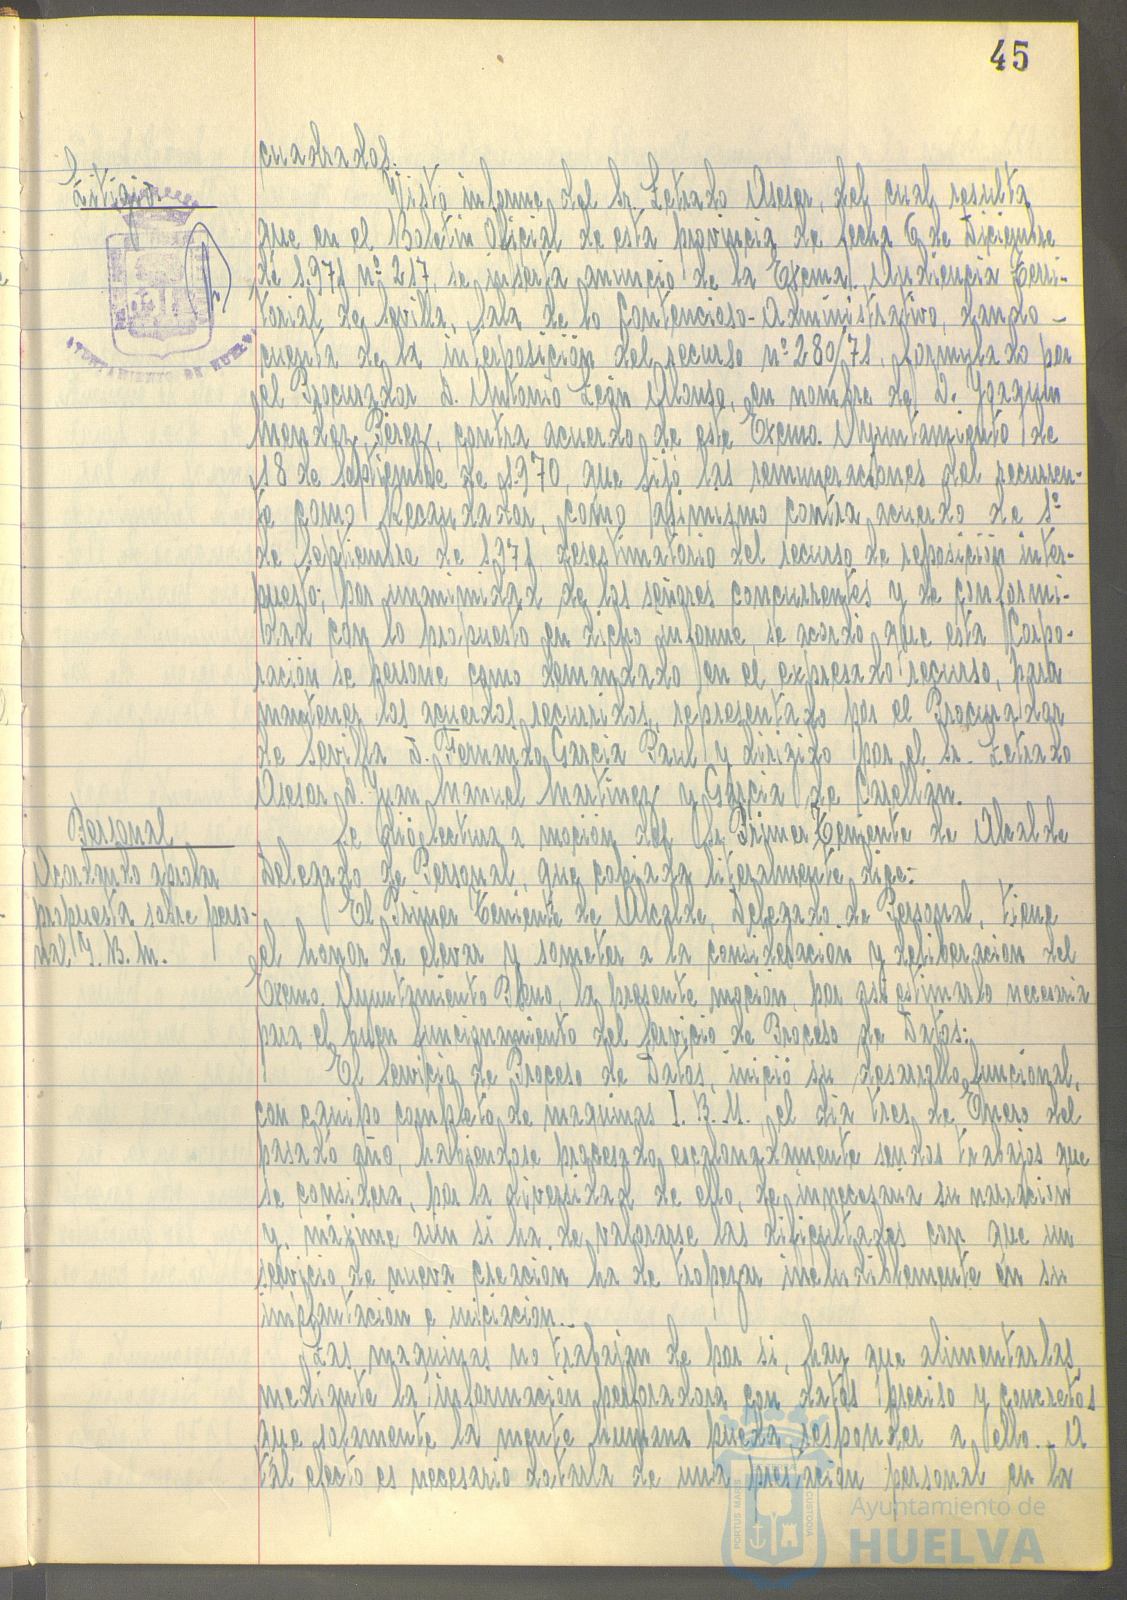 45
cuadrados.
Litigio
Visto informe del Sr. Letrado Asesor, del cual resulta
que en el Boletín Oficial de esta provincia de fecha 6 de Diciembre
de 1.971 nº 217, se inserta anuncio de la Excma. Audiencia Terri-
torial de Sevilla, Sala de lo Contencioso-Administrativo, dando
cuenta de la interposición del recurso nº 280/71, formulado por
el Procurador D. Antonio León Alonso, en nombre de D. Joaquín
Mendez Perez, contra acuerdo de este Excmo. Ayuntamiento de
18 de Septiembre de 1.970, que fijó las remuneraciones del recurren-
te como Recaudador, como asimismo contra acuerdo de 1º
de Septiembre de 1.971, desestimatorio del recurso de reposición inter-
puesto; por unanimidad de los señores concurrentes y de conformi-
dad con lo propuesto en dicho informe, se acordó que esta Corpo-
ración se persone como demandado en el expresado recurso, para
mantener los acuerdos recurridos, representado por el Procurador
de Sevilla D. Fernando García Paul y dirigido por el Sr. Letrado
Asesor D. Juan Manuel Martinez y García de
Personal
Acordando aprobar
propuesta sobre perso-
nal I. B. M.
Se dió lectura a moción del Sr. Primer Teniente de Alcalde
Delegado de Personal, que copiada literalmente dice:
El Primer Teniente de Alcalde, Delegado de Personal, tiene
el honor de elevar y someter a la consideración y deliberación del
Excmo. Ayuntamiento Pleno, la presente moción, por así estimarlo necesaria
para el buen funcionamiento del Servicio de Proceso de Datos:
El Servicio de Proceso de Datos, inició su desarrollo funcional,
con equipo completo de maquinas I. B. M. el dia tres de Enero del
pasado año, habiendose procesado escalonadamente sendos trabajos que
se considera, por la diversidad de ello, de innecesaria su narración
y, máxime aún si ha de valorarse las dificultades con que un
servicio de nueva creación ha de tropezar ineludiblemente en su
implantación e iniciación.
Las maquinas no trabajan de por si, hay que alimentarlas
mediante la información perforadora con datos preciso y concretos
que solamente la mente humana pueda responder a ello. A
tal efecto es necesario dotarla de una prestación personal en la
AYUNTAMIENTO DE HUELVA
PORTUS MARIS
CUSTODIA
Ayuntamiento de
HUELVA